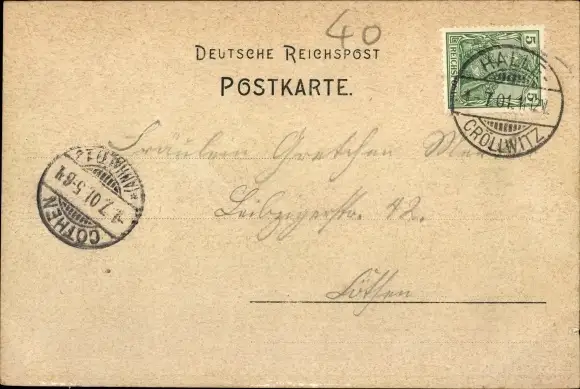 40
DEUTSCHE REICHSPOST
POSTKARTE.
5
REICHSPOST
5
HALLE
7.01.
CRÖLLWITZ
(ANHALT)
7.01.5-6N
CÖTHEN
Fräulein Gretchen
Leipzigerstr. 42.
Cöthen